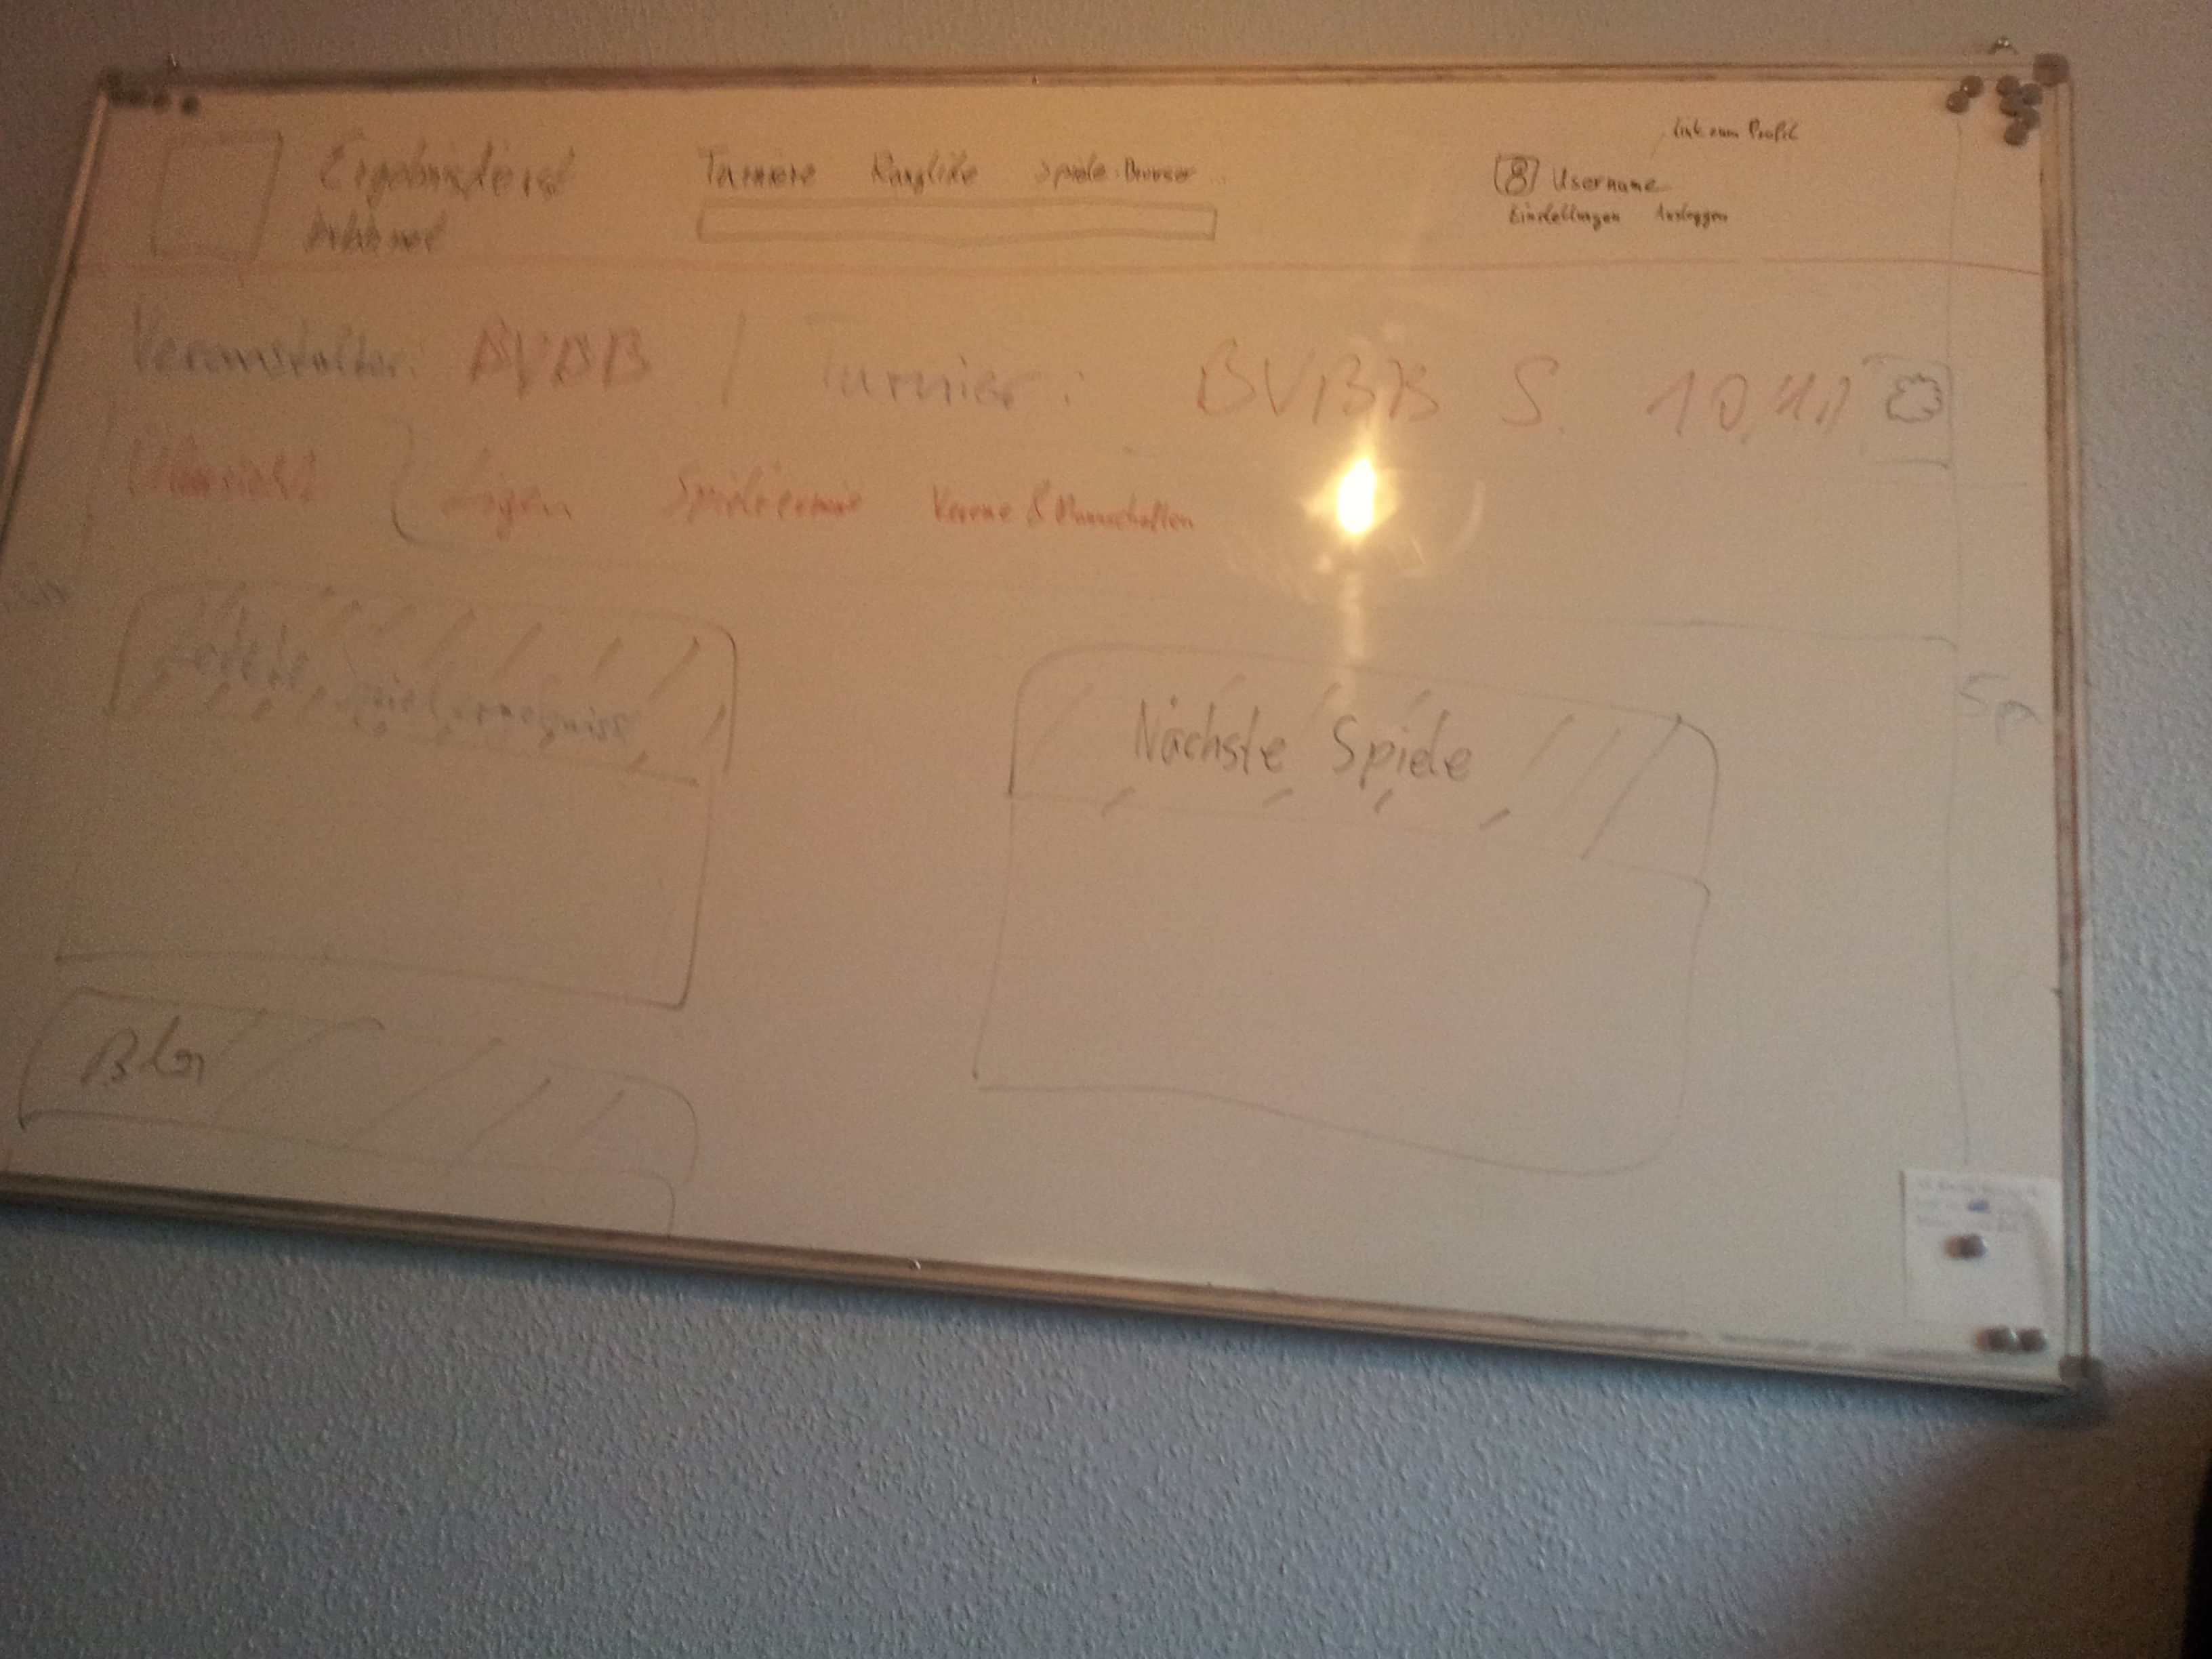 link zum Profil
Turniere Rangliste Spiele-Browser
Username
Einstellungen Ausloggen
Veranstalter: BVBB / Turnier: BVBB S.
Übersicht Ligen Spieltermine Vereine & Mannschaften
Letzte Spielergebnisse
Nächste Spiele
Sp